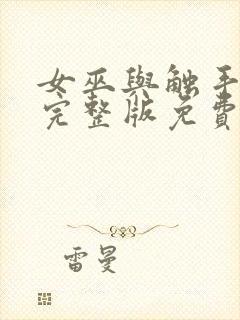 女巫與触手
完整版免費
雷曼